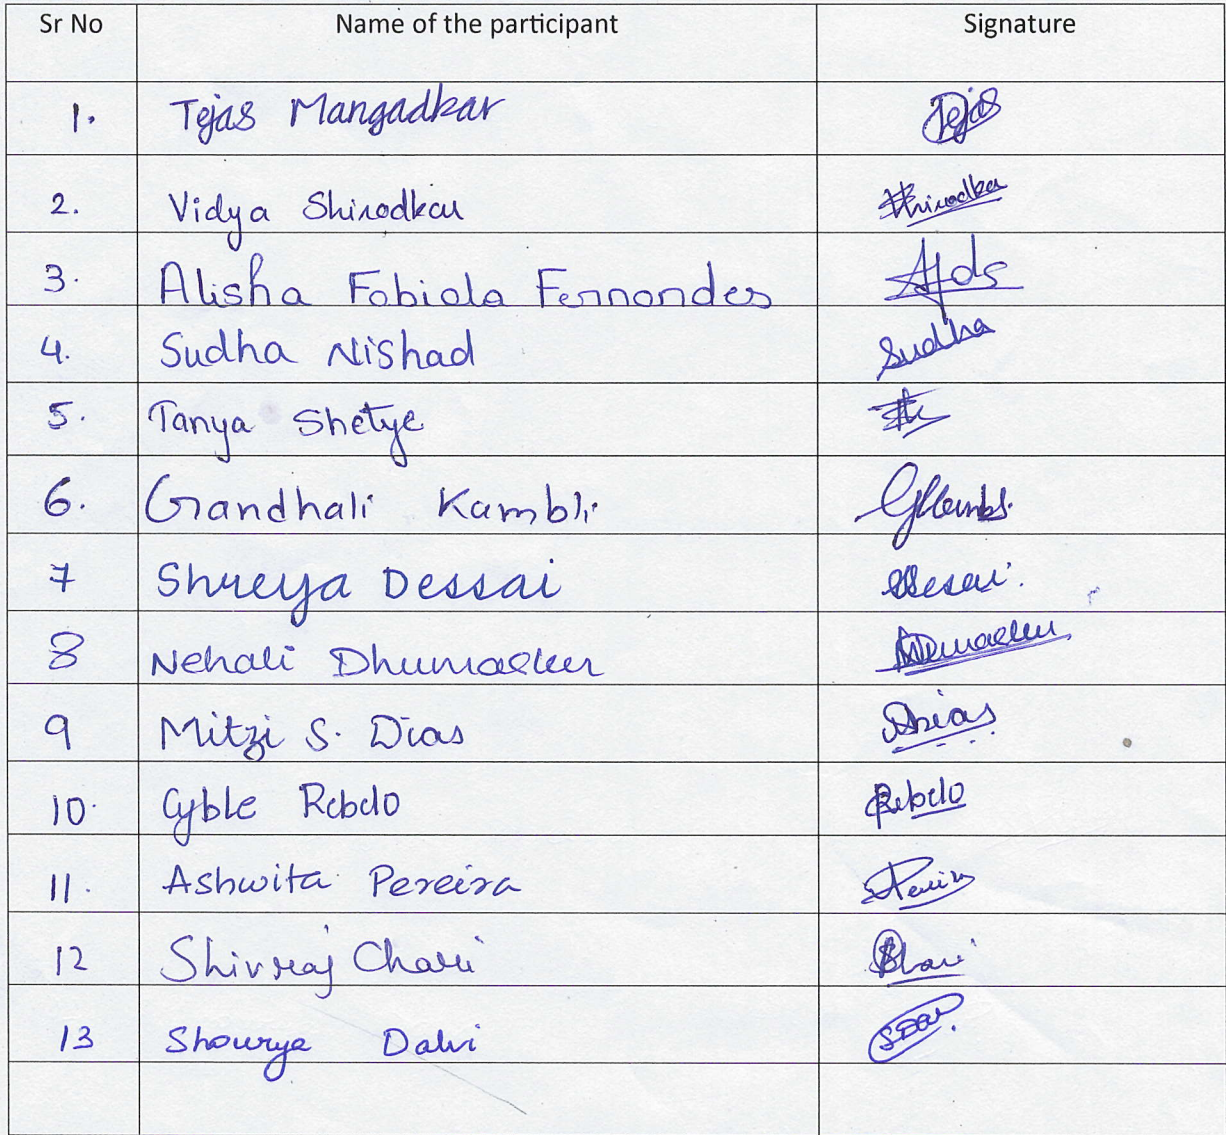 Sr No Name of the participant Signature
1. Tejas Mangadkar Tejas
2. Vidya Shirodkar Shirodkar
3. Alisha Fabiola Fernandes Afds
4. Sudha Nishad Sudha
5. Tanya Shetye
6. Gandhali Kambli
7 Shreya Dessai
8 Nehali Dhumaskar
9 Mitzi S. Dias Dias
10. Cyble Rebelo Rebelo
11. Ashwita Pereira
12 Shivraj Chari
13 Shourya Dalvi